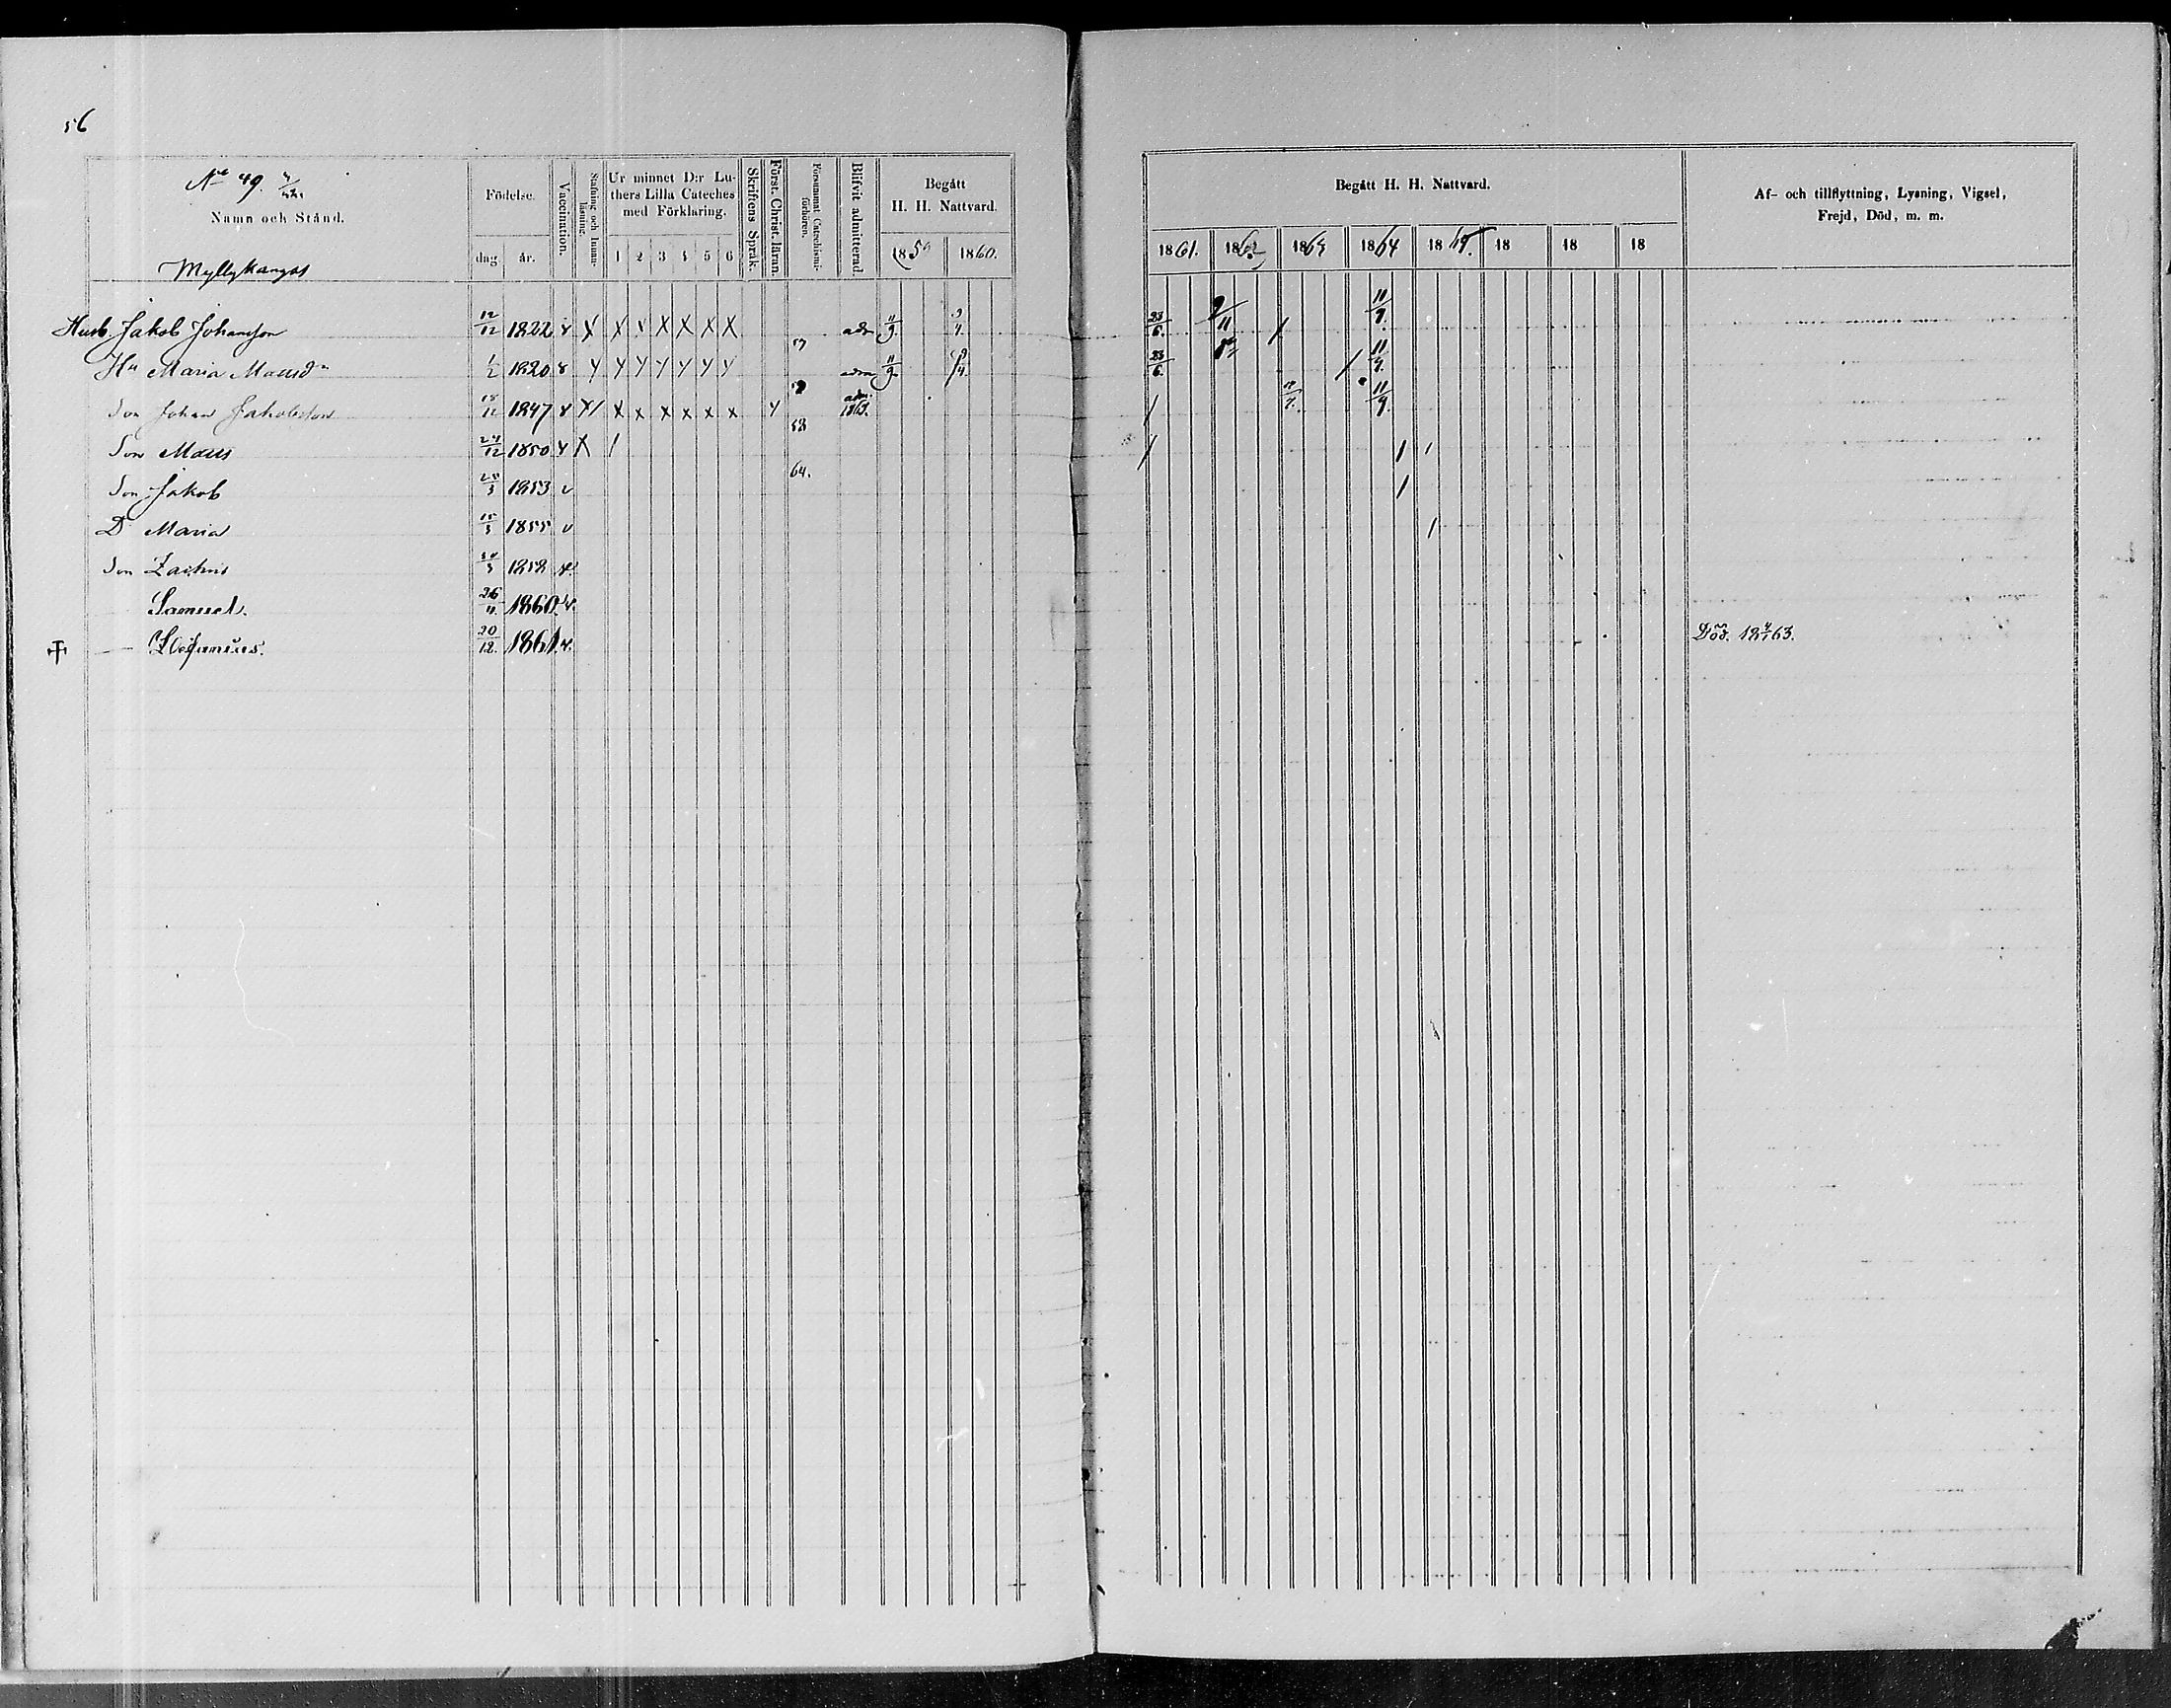 56
Nº 49.
Namn och Stånd.
Myllykangas
Födelse.
dag. år.
Vaccination.
Stafning och Innanläsning.
Ur minnet D:r Lu-
thers Lilla Cateches
med Förklaring.
1 2 3 4 5 6
Skriftens Språk.
Först. Christ. läran.
Försummat Catechismi-
förhören.
Blifvit admitterad.
Begått
H. H. Nattvard.
1859 1860.
Begått H. H. Nattvard.
1861. 1862 1863 1864 18 18 18 18
Af- och tillflyttning, Lysning, Vigsel,
Frejd, Död, m. m.
Husb. Jakob Johansson 12/12 1822 x x x x x x x adm. 11/9. 23/6. 9/11 11/9.
Hu Maria Mattsdr 1/2 1820 adm 11/9 23/6. 11/9.
Son Johan Jakobsson 1847 x x x x x x adm. 1863. 11/9
Son Matts 24/12 1850 x
64.
Son Jakob 1853 v
D Maria 15/3 1855 v
Son Zachris 1858
Samuel. 26/11. 1860. v.
— 20/12. 1861 v. Död. 18 4/1 63.